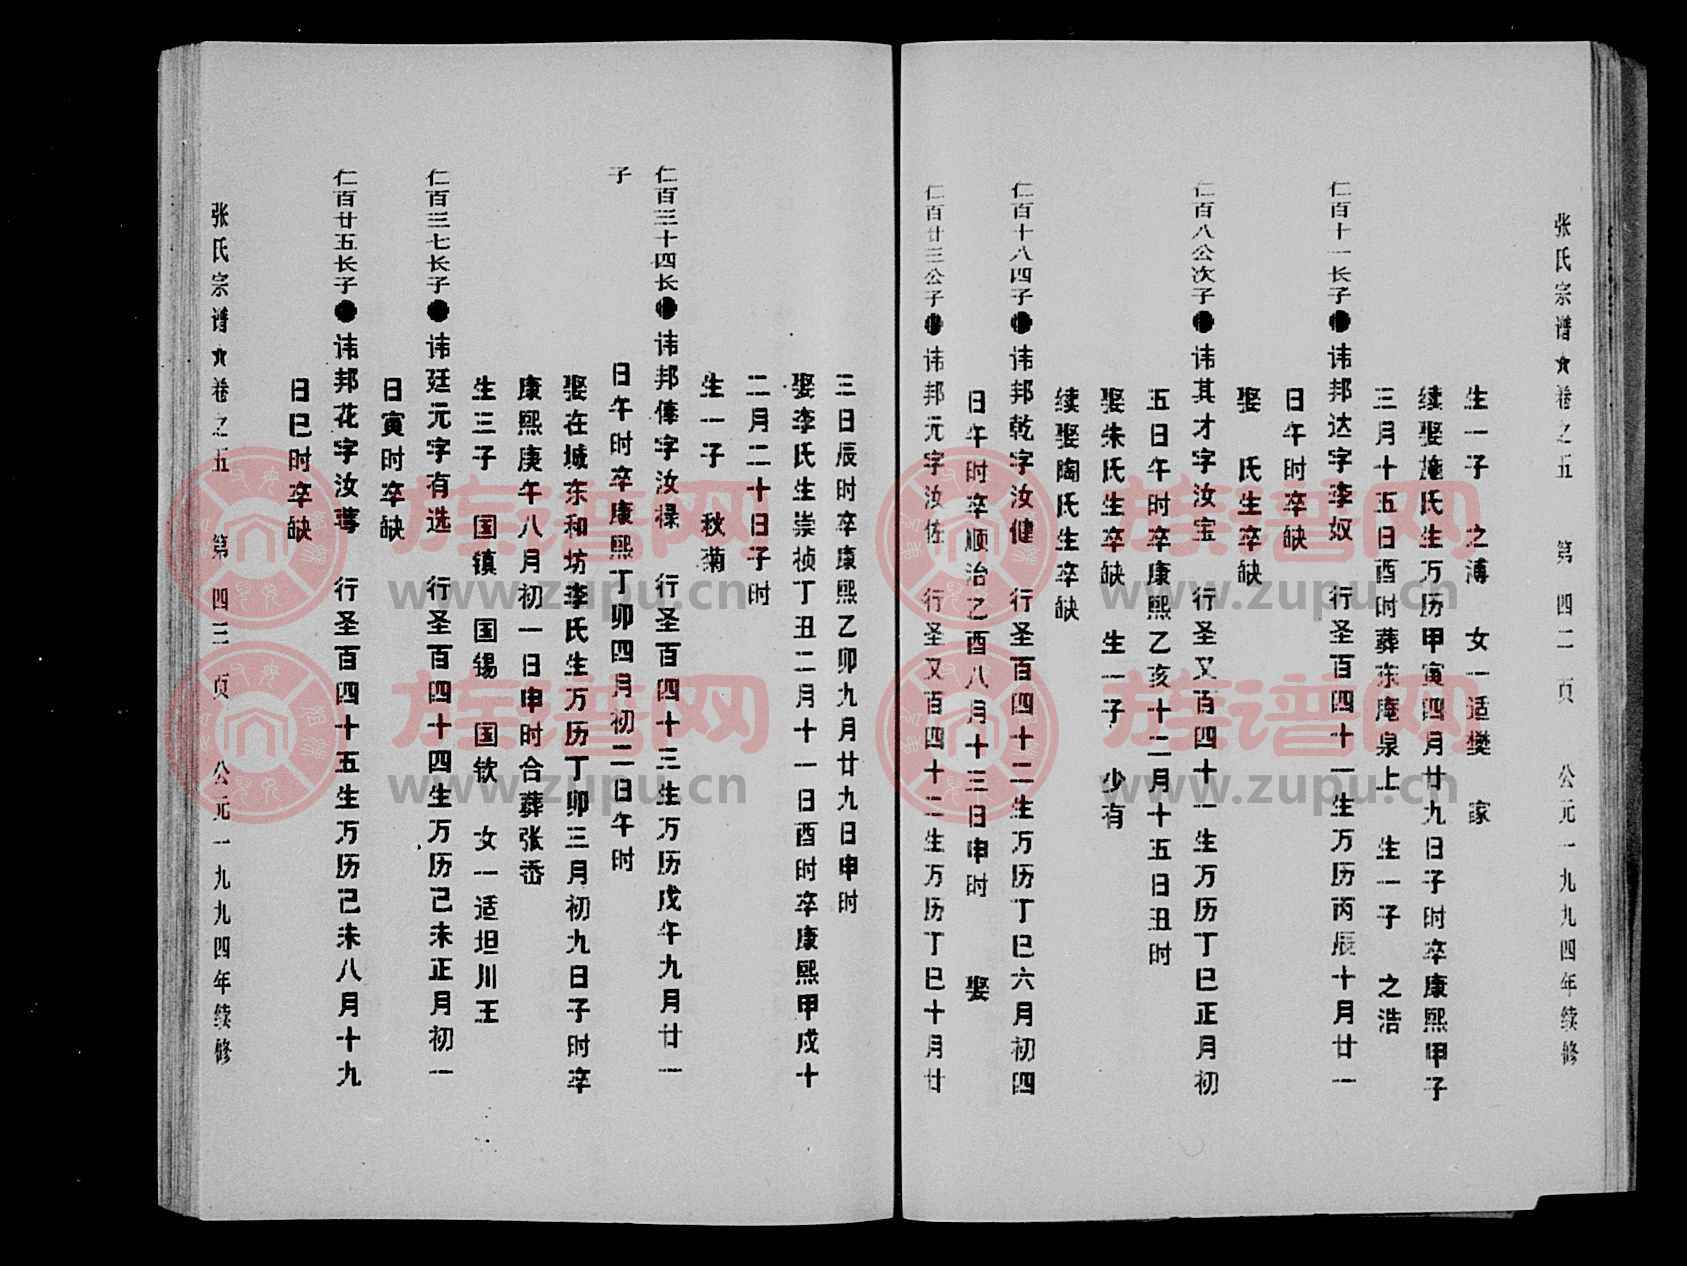 张氏宗谱★卷之五　第四二页　公元一九九四年续修
生一子　之溥　女一适樊　家
续娶施氏生万历甲寅四月廿九日子时卒康熙甲子
三月十五日酉时葬东庵泉上　生一子　之浩
仁百十一长子●讳邦达字李奴　行圣百四十一生万历丙辰十月廿一
日午时卒缺
娶　氏生卒缺
仁百八公次子●讳其才字汝宝　行圣又百四十一生万历丁巳正月初
五日午时卒康熙乙亥十二月十五日丑时
娶朱氏生卒缺　生一子　少有
续娶陶氏生卒缺
仁百十八四子●讳邦乾字汝健　行圣百四十二生万历丁巳六月初四
日午时卒顺治乙酉八月十三日申时　娶
仁百廿三公子●讳邦元字汝佐　行圣又百四十二生万历丁巳十月廿
三日辰时卒康熙乙卯九月廿九日申时
娶李氏生崇祯丁丑二月十一日酉时卒康熙甲戌十
二月二十日子时
生一子　秋菊
仁百三十四长●讳邦俸字汝禄　行圣百四十三生万历戊午九月廿一
子
日午时卒康熙丁卯四月初二日午时
娶在城东和坊李氏生万历丁卯三月初九日子时卒
康熙庚午八月初一日申时合葬张岙
生三子　国镇　国锡　国钦　女一适坦川王
仁百三七长子●讳廷元字有选　行圣百四十四生万历己未正月初一
日寅时卒缺
仁百廿五长子●讳邦花字汝　行圣百四十五生万历己未八月十九
日巳时卒缺
张氏宗谱★卷之五　第四三页　公元一九九四年续修
族谱网
www.zupu.cn
族谱网
www.zupu.cn
族谱网
www.zupu.cn
族谱网
www.zupu.cn